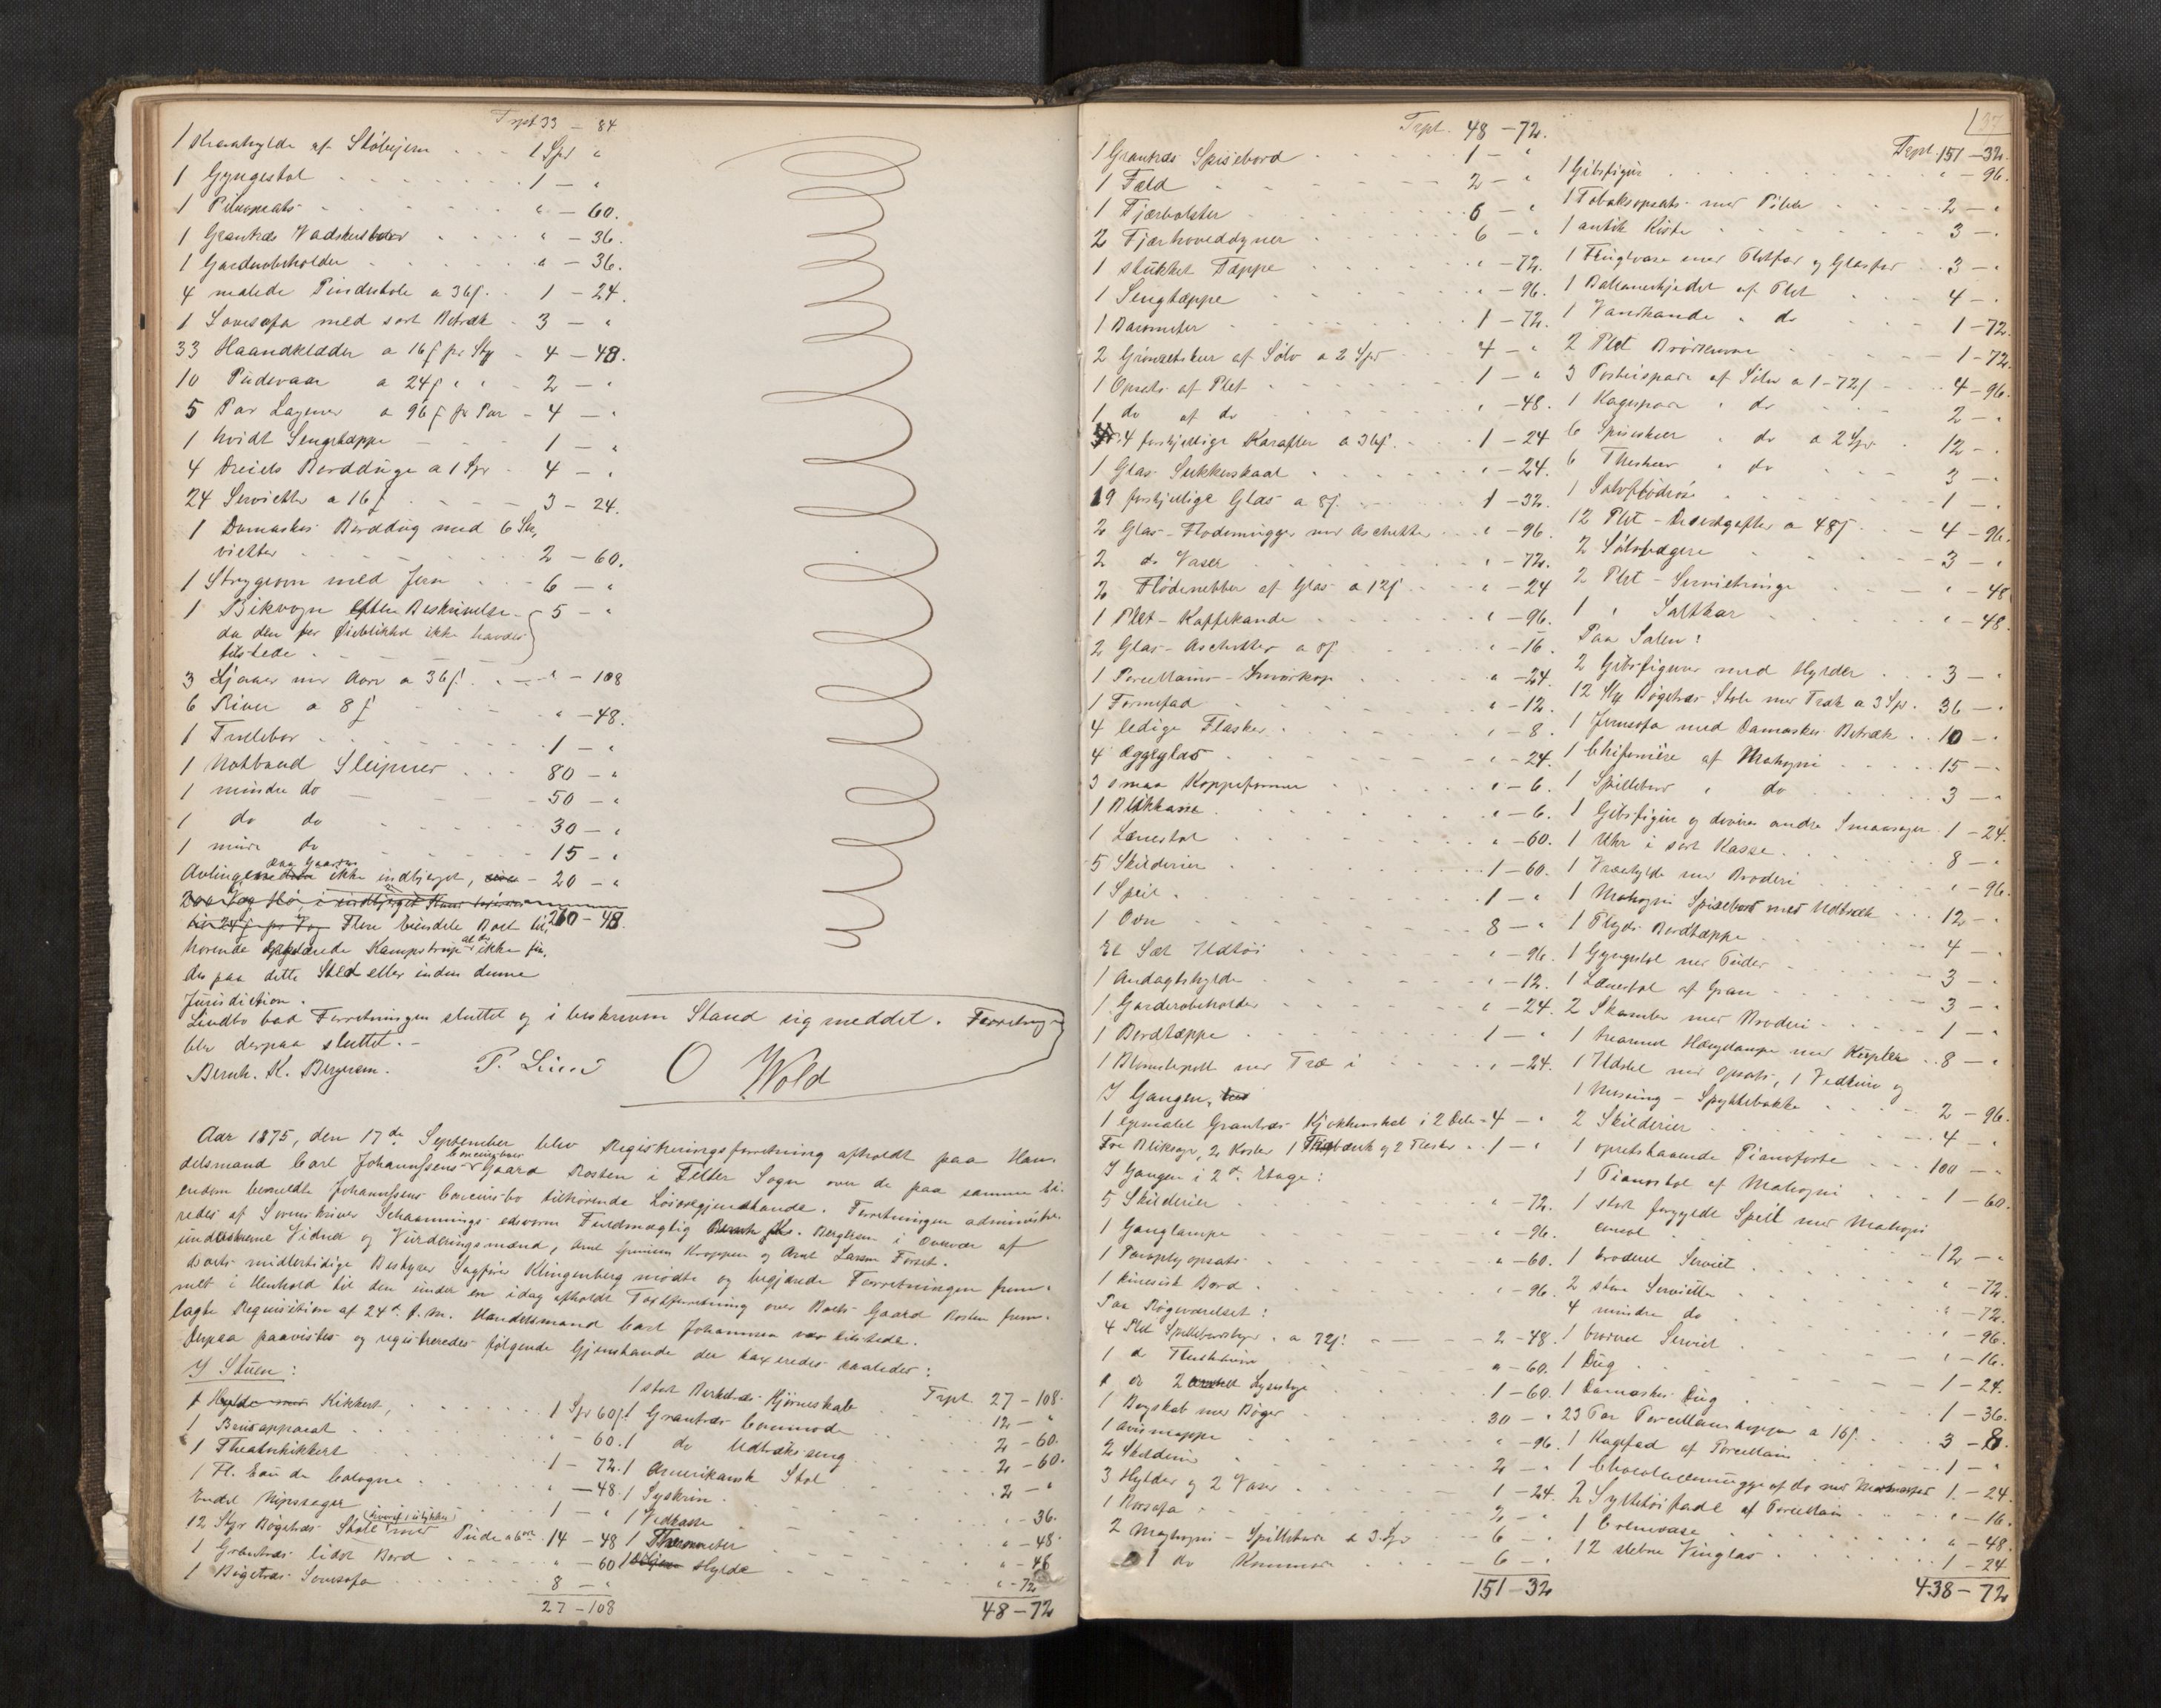 Trpt 33 – 84
1 Kranhylde af Støbejern 1 Spd "
1 Gyngestol 1 – "
1 Pibeopsats " – 60.
1 Grantræs Vadskerbord " – 36.
1 Garderobeholder " – 36.
4 malede Pindestole a 36ſ 1 – 24.
1 Sovesofa med sort Betræk 3 – "
33 Haandklæder a 16ſ pr Stk 4 – 48.
10 Pudevaar a 24ſ " " 2 – "
5 Par Lagener a 96ſ pr Par 4 – "
1 hvidt Sengetæppe 1 – "
4 Dreiels Borddüge a 1 Spd 4 – "
24 Servietter a 16ſ 3 – 24.
1 Damaskes Borddüg med 6 Ser-
vietter 2 – 60.
1 Strygeovn med Jern 6 – "
1 Bikvogn efter Beskrivelse 5 – "
da den for Øieblikket ikke havdes
tilstede.
3 Ljaaer med Aorv a 36ſ " – 108
6 River a 8ſ " – 48.
1 Trillebor 1 – "
1 Notbaad Sleipner 80 – "
1 mindre do 50 – "
1 do do 30 – "
1 mindre do 15 – "
Avlingen paa Gaarden ikke indbjerget, 20 – "
Flere biendele Boet til- 260 – 48.
hørende opgivne Kampstrup at de ikke fin-
des paa dette Sted eller inden denne
Jurisdiction.
Lindbo bad Forretningen sluttet og i beskreven Stand sig meddelt. Forretningen
blev derpaa sluttet. –
Bernh. K. Bergersen. P. Lind O Wold
Aar 1875, den 17de September blev Registreringsforretning afholdt paa Han-
delsmand Carl Johannssens Concursboes Gaard Rosten i Tiller Sogn over de paa samme Ei-
endom bemeldte Johannssens Concursbo tilhørende Løsøregjenstande. Forretningen administre-
redes af Sorenskriver Schaannings edsvorne Fuldmægtig Bernh. K. Bergersen i Overvær af
undertegnede Vidner og Vurderingsmænd, Arnt Kroppen og Arnt Larsen Forset.
Boets midlertidige Bestyrer Sagfører Klingenberg mødte og begjærede Forretningen frem-
met i Henhold til den under en idag afholdt Taxtforretning over Boets Gaard Rosten frem-
lagte Requisition af 24de f. M. Handelsmand Carl Johannsen var tilstede.
Derpaa paavistes og registreredes følgende Gjenstande der taxeredes saaledes:
I Stuen:
1 Kikkert, 1 Spd 60ſ
1 Brusapparat " – 60.
1 Theaterkikkert 1 – 72.
1 Fl. Eau de Cologne " – 48.
Endel Nipssager 1 – "
12 Stkr Bøgetræs Stole med Pude 14 – 48
1 Grantræs lidet Bord " – 60
1 Bøgetræs Sovesofa 8 – "
27 – 108
Trpt 27 – 108.
1 stort Birketræs Hjørneskab 12 – "
1 Grantræs Commode 2 – 60.
1 do Udtræksseng 2 – 60.
1 Amerikansk Stol 2 – "
1 Syskrin " – 36.
1 Vedkasse " – 48.
1 Thermometer " – 48
1 Hylde " – 72
48 – 72
Trpt. 48 – 72.
1 Grantræs Spisebord 1 – "
1 Fæld 2 – "
1 Fjærbolster 6 – "
2 Fjærhoveddyner 6 – "
1 stükket Tæppe " – 72.
1 Sengtæppe " – 96.
1 Barometer 1 – 72.
2 Grønsetskeer af Sølv a 2 Spd 4 – "
1 Opsats af Plet 1 – "
1 do af do " – 48.
4 forskjellige Karafler a 36ſ 1 – 24
1 Glas Sukkerskaal " – 24.
19 forskjellige Glas a 8ſ 1 – 32.
2 Glas-Flødemugger med Aschetter " – 96.
2 do Vaser " – 72.
2 Flødenebber af Glas a 12ſ " – 24
1 Plet-Kaffekande " – 96.
2 Glas-Aschetter a 8ſ " – 16.
1 Porcellains-Smørkop " – 24.
1 Formfad " – 12.
4 ledige Flasker " – 8.
4 Æggeglas " – 24.
3 smaa Koppeformer " – 6.
1 Blikkasse " – 6.
1 Lænestol " – 60.
5 Skilderier 1 – 60.
1 Speil 1 – "
1 Ovn 8 – "
Et Sæt Ildtøi " – 96.
1 Andagtshylde " – 12.
1 Garderobeholder " – 24.
1 Bordtæppe 1 – "
1 Blomsterpotte med Træ i " – 24.
I Gangen,
1 egemalet Grantræs Kjøkkenskab i 2 Dele 4 – "
Tre Bliksager, 2 Koster 1 Træbænk og 2 Flasker 1 – "
I Gangen i 2den Etage:
5 Skilderier " – 72.
1 Ganglampe " – 96.
1 Paraplyopsats " – 60.
1 kinesisk Bord " – 96.
Paa Røgeværelset:
4 Plet Spillebordslyse a 72ſ 2 – 48.
1 do Theeskrin " – 60.
1 do 2 Lysestage 1 – 60.
1 Bogskab med Bøger 30 – "
1 Avismappe " – 96.
2 Skilderier 2 – "
3 Hylder og 2 Vaser 1 – 24.
1 Rorsofa 2 – "
2 Mahogni-Spilleborde a 3 Spd 6 – "
1 do Kommode 6 – "
151 – 32
Trpt 151 – 32.
1 Gibsfigur " – 96.
1 Tobaksopsats med Piber 2 – "
1 antik Kiste 3 – "
1 Frugtvase med Pletfad og Glasfad 3 – "
1 Ballancekjedel af Plet 4 – "
1 Vandkande " do 1 – 72.
2 Plet Brødkurve 1 – 72.
3 Posteispader af Sølv a 1–72ſ 4 – 96.
1 Kagespade " do 2 – "
6 Spiseskeer " do a 2 Spd 12 – "
6 Theskeer " do 3 – "
1 Sølvflødeøse 1 – "
12 Plet-Dessertgafler a 48ſ 4 – 96.
2 Sølvbægere 3 – "
2 Plet-Servietringe " – 48
1 " Saltkar " – 48.
Paa Salen:
2 Gibsfigurer med Hylder 3 – "
12 Stk Bøgetræs Stole med Træk a 3 Spd. 36 – "
1 Jernsofa med Damaskes Betræk 10 – "
1 Chifoniere af Mahogni 15 – "
1 Spillebord " do 3 – "
1 Gibsfigur og diverse andre Smaasager 1 – 24.
1 Uhr i sort Kasse 8 – "
1 Vræhylde med Broderi " – 96.
1 Mahogni Spisebord med Udtræk 12 – "
1 Plyds Bordtæppe 4 – "
1 Gyngestol med Puder 3 – "
1 Lænestol af Gran 3 – "
2 Skamler med Broderi 1 – "
1 trearmet Hængelampe med Kupler 8 – "
1 Ildsted med opsats, 1 Vedkurv og
1 Messing-Spyttebakke 2 – 96.
2 Skilderier 4 – "
1 opretstaaende Pianoforte 100 – "
1 Pianostol af Mahogni 1 – 60.
1 stort forgyldt Speil med Mahogni
consol 12 – "
1 broderet Serviet " – 72.
2 større Servietter " – 72.
4 mindre do " – 96.
1 broderet Serviet " – 16.
1 Düg 1 – 24.
1 Damaskes Düg 1 – 36.
23 Par Porcellainskopper a 16ſ 3 – 8.
1 Kagefad af Porcellain 1 – "
1 Chocolademugge af do 1 – 24.
2 Syltetøifade af Porcellain " – 16.
1 Cremevase " – 48.
12 slebne Vinglas 1 – 24
438 – 72